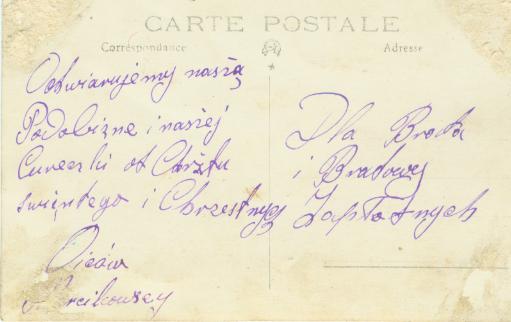 CARTE POSTALE
Correspondance
Adresse
Odtwiarujemy naszą
Podobizne i naszej
Cureczki ot Chrztu
święntego i Chrzestnyg
Ojców
Dla Brata
i Bratowy
Zapłotnych